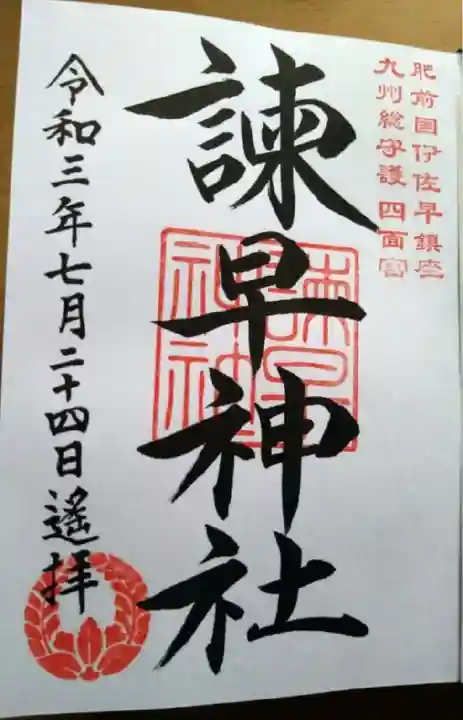 肥前国伊佐早鎮座
九州総守護四面宮
諫早神社
諫早神社
令和三年七月二十四日遙拝